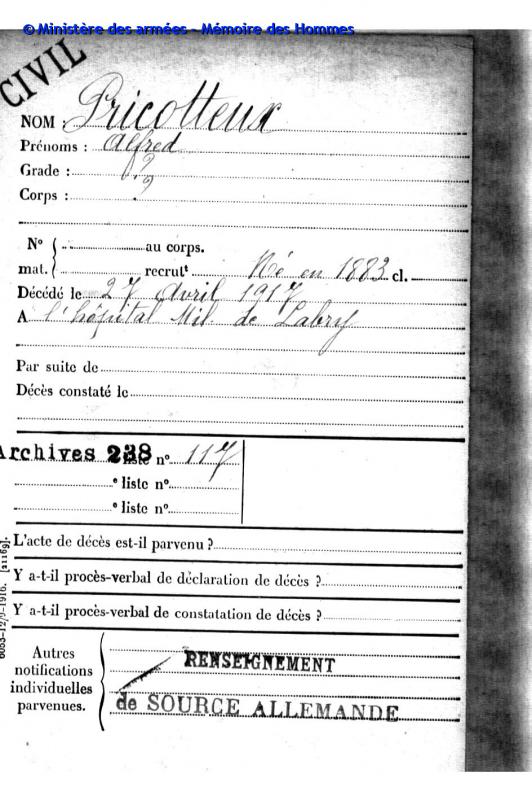 © Ministère des armées - Mémoire des Hommes
CIVIL
NOM : Pricotteux
Prénoms : Alfred
Grade : ?
Corps : ?
N° au corps.
mat. recrutt Né en 1883 cl.
Décédé le 27 Avril 1917
A l'hôpital Mil. de Labry
Par suite de
Décès constaté le
Archives 238 liste n° 117
e liste n°
e liste n°
L'acte de décès est-il parvenu ?
Y a-t-il procès-verbal de déclaration de décès ?
Y a-t-il procès-verbal de constatation de décès ?
Autres
notifications
individuelles
parvenues.
RENSEIGNEMENT
de SOURCE ALLEMANDE